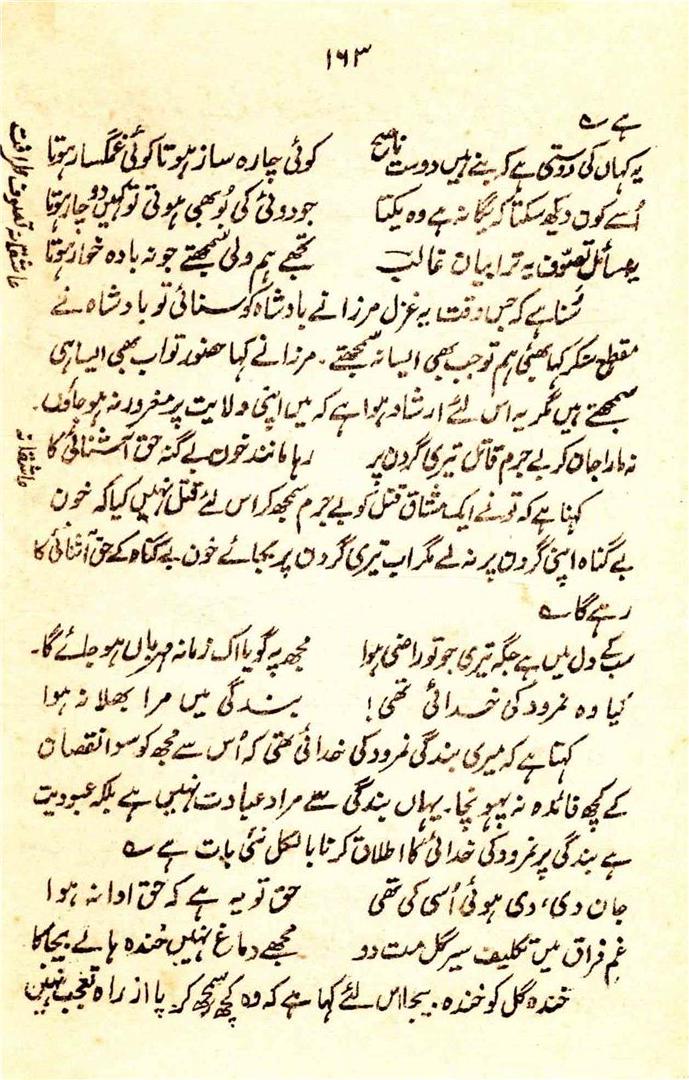 ۱۶۳
ہے ؎
یہ کہاں کی دوستی ہے کہ بنے ہیں دوست ناصح کوئی چارہ ساز ہوتا کوئی غمگسار ہوتا
اُسے کون دیکھ سکتا کہ یگانہ ہے وہ یکتا جو دوئی کی بُو بھی ہوتی تو کہیں دو چار ہوتا
یہ مسائلِ تصوّف یہ ترا بیان غالب تجھے ہم ولی سمجھتے جو نہ بادہ خوار ہوتا
عاشقانہ تصوف ظرافت
سُنا ہے کہ جس وقت یہ غزل مرزا نے بادشاہ کو سنائی تو بادشاہ نے
مقطع سنکر کہا بھئی ہم تو جب بھی ایسا نہ سمجھتے۔ مرزا نے کہا حضور تو اب بھی ایسا ہی
سمجھتے ہیں مگر یہ اس لئے ارشاد ہوا ہے کہ میں اپنی ولایت پر مغرور نہ ہو جاؤں۔
نہ مارا جان کر بے جرم قاتل تیری گردن پر رہا مانند خون بے گنہ حق آشنائی کا
عاشقانہ
کہتا ہے کہ تو نے ایک مشتاق قتل کو بے جرم سمجھ کر اس لئے قتل نہیں کیا کہ خون
بے گناہ اپنی گردن پر نہ لے مگر اب تیری گردن پر بجائے خون بے گناہ کے حق آشنائی کا
رہے گا ؎
سب کے دل میں ہے جگہ تیری جو تو راضی ہوا مجھ پہ گویا اک زمانہ مہرباں ہو جائے گا۔
کیا وہ نمرود کی خدائی تھی! بندگی میں مرا بھلا نہ ہوا
کہتا ہے کہ میری بندگی نمرود کی خدائی تھی کہ اُس سے مجھ کو سوا نقصان
کے کچھ فائدہ نہ پہونچا۔ یہاں بندگی سے مراد عبادت نہیں ہے بلکہ عبودیت
ہے بندگی پر نمرود کی خدائی کا اطلاق کرنا بالکل نئی بات ہے ؎
جان دی، دی ہوئی اُسی کی تھی حق تو یہ ہے کہ حق ادا نہ ہوا
غم فراق میں تکلیف سیر گل مت دو مجھے دماغ نہیں خندہ ہائے بیجا کا
خندہ گل کو خندہ بیجا اس لئے کہا ہے کہ وہ کچھ سمجھ کر یا از راہ تعجب نہیں